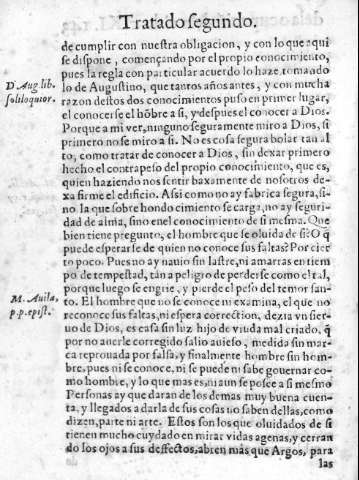 Tratado segundo.
de cumplir con nuestra obligacion, y con lo que aqui
se dispone, començando por el propio conocimiento,
pues la regla con particular acuerdo lo haze tomando
D. Aug lib.
soliloquior.
lo de Augustino, que tantos años antes, y con mucha
razon destos dos conocimientos puso en primer lugar,
el conocerse el hõbre a si, y despues el conocer a Dios.
Porque a mi ver, ninguno seguramente miro a Dios, si
primero no se miro a si. No es cosa segura bolar tan al
to, como tratar de conocer a Dios, sin dexar primero
hecho el contrapeso del propio conocimiento, que es,
quien haziendo nos sentir baxamente de nosotros de-
xa firme el edificio. Assi como no ay fabrica segura, si-
no la que sobre hondo cimiento se carga, no ay seguri-
dad de alma, sino en el conocimiento de si mesma. Que
bien tiene pregunto, el hombre que se oluida de si? O q̃
puede esperarse de quien no conoce sus faltas? Por cier
to poco. Pues no ay nauio sin lastre, ni amarras en tiem
po de tempestad, tan a peligro de perderse como el tal,
porque luego se engrie, y pierde el peso del temor san-
M. Auila,
p.p. epist.
to. El hombre que no se conoce ni examina, el que no
reconoce sus faltas, ni espera correction, dezia vn sier-
uo de Dios, es casa sin luz hijo de viuda mal criado, q̃
por no auerle corregido salio auieso, medida sin mar-
ca reprouada por falsa, y finalmente hombre sin hom-
bre, pues ni se conoce, ni se puede ni sabe gouernar co-
mo hombre, y lo que mas es, ni aun se posee a si mesmo
Personas ay que daran de los demas muy buena cuen-
ta, y llegados a darla de sus cosas no saben dellas, como
dizen, parte ni arte. Estos son los que oluidados de si
tienen mucho cuydado en mirar vidas agenas, y cerran
do los ojos a sus deffectos, abren mas que Argos, para
las